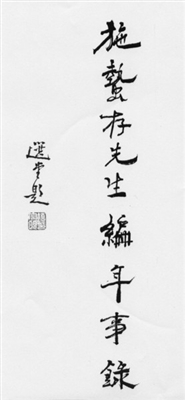 施蟄存先生編年事錄
選堂題